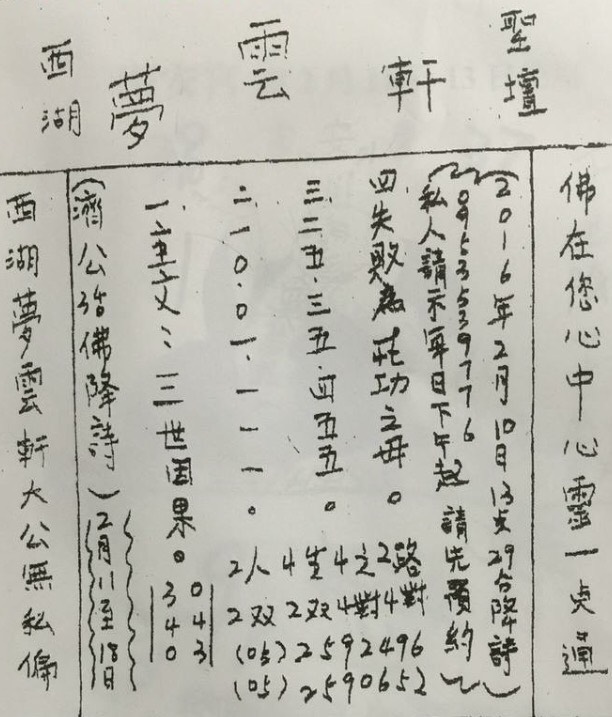 西湖夢雲軒聖壇
佛在您心中心靈一点通
(2016年2月10日13点29分降詩)
(0953539776
私人請示單日下午起請先預約)
四失敗為成功之母。
三三五.三五.四五五。
二.一0.0一.一一一。
一.二三世因果。
(濟公活佛降詩)
2月11至18日
西湖夢雲軒大公無私偏
2人4生4之2路
2双2双4對4對
(05)2592496
(05)2590652
340
043